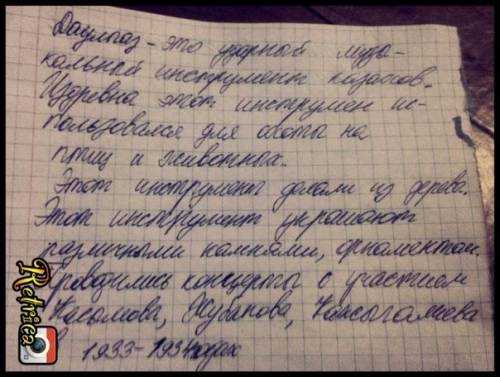 Даулпаз - это ударный музы-
кальный инструмент казахов.
Издревна этот инструмен ис-
пользовался для охоты на
птиц и животных.
Этот инструмент делали из дерева.
Этот инструмент украшают
различными камнями, орнаментам.
Проводились концерты с участием
Касымова, Жубанова, Капсыгалиева
В 1933-1934 годах
Retrica